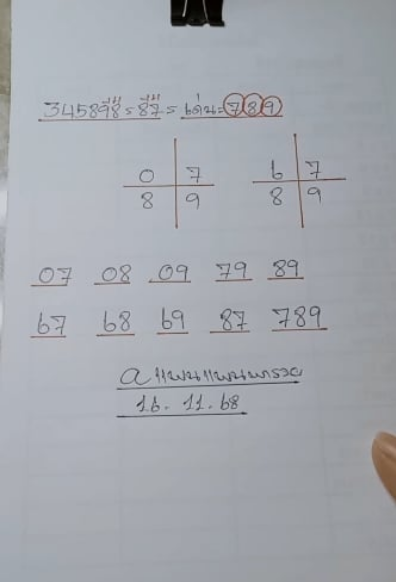 345898 = 87 = เด่น = 789
0 7 6 7
8 9 8 9
07 08 09 79 89
67 68 69 87 789
16. 11. 68